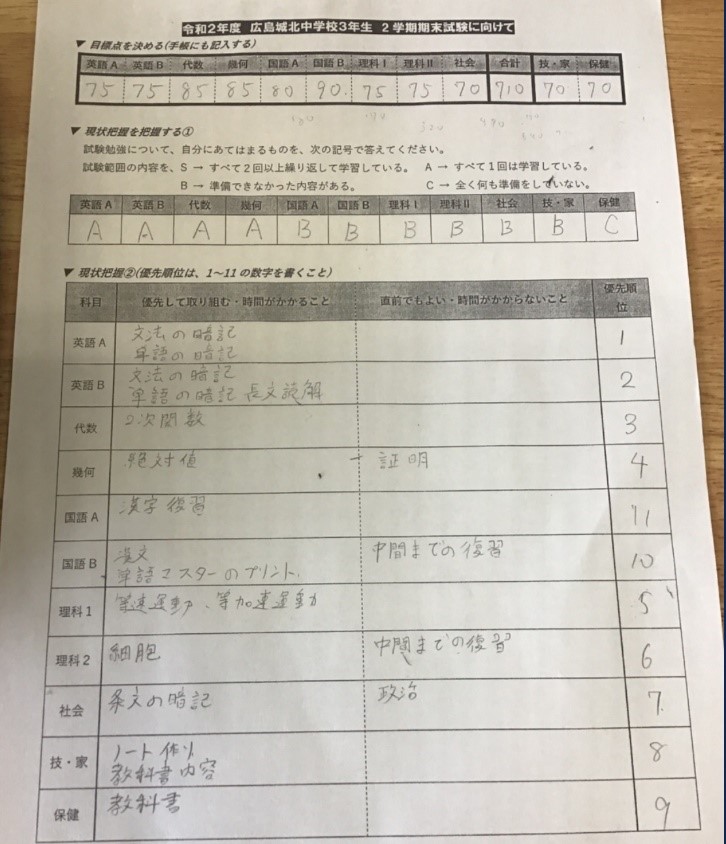 令和2年度 広島城北中学校3年生 2学期期末試験に向けて
▼ 目標点を決める(手帳にも記入する)
英語A 英語B 代数 幾何 国語A 国語B 理科Ⅰ 理科Ⅱ 社会 合計 技・家 保健
75 75 85 85 80 90. 75 75 70 710 70 70
▼ 現状把握を把握する①
試験勉強について、自分にあてはまるものを、次の記号で答えてください。
試験範囲の内容を、S → すべて2回以上繰り返して学習している。 A → すべて1回は学習している。
B → 準備できなかった内容がある。 C → 全く何も準備をしていない。
英語A 英語B 代数 幾何 国語A 国語B 理科Ⅰ 理科Ⅱ 社会 技・家 保健
A A A A B B B B B B C
▼ 現状把握②(優先順位は、1～11の数字を書くこと)
科目 優先して取り組む・時間がかかること 直前でもよい・時間がかからないこと 優先順位
英語A 文法の暗記 1
単語の暗記
英語B 文法の暗記 2
単語の暗記 長文読解
代数 2次関数 3
幾何 絶対値 証明 4
国語A 漢字復習 11
国語B 漢文 中間までの復習 10
単語マスターのプリント.
理科1 等速運動、等加速運動 5
理科2 細胞 中間までの復習 6
社会 条文の暗記 政治 7.
技・家 ノート作り 8
教科書内容
保健 教科書 9